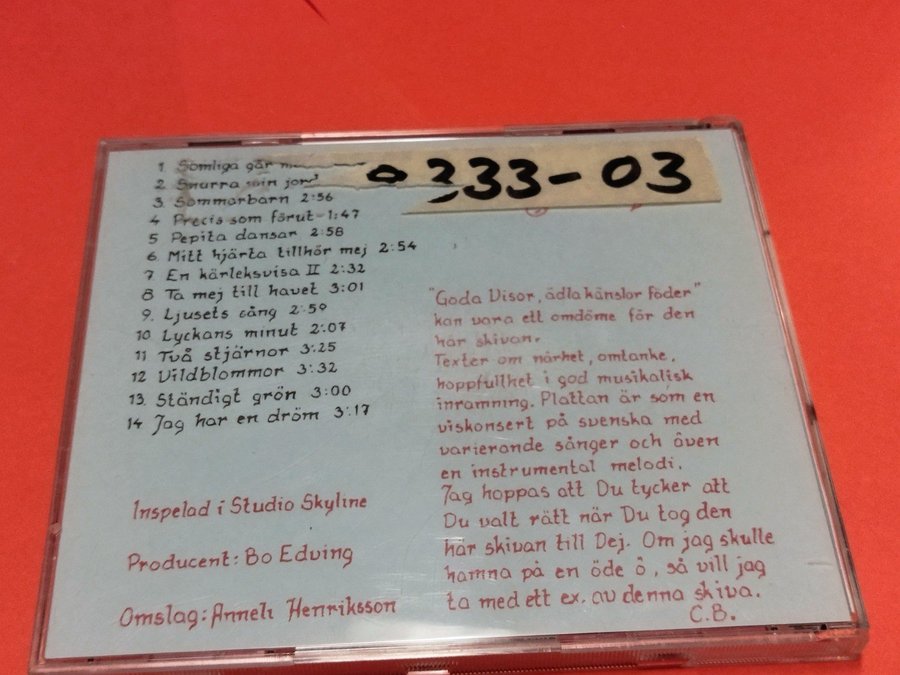 1 Somliga går
2 Snurra min jord
3. Sommarbarn 2:56
4 Precis som förut 1:47
5 Pepita dansar 2:58
6. Mitt hjärta tillhör mej 2:54
7 En kärleksvisa II 2:32
8 Ta mej till havet 3:01
9. Ljusets cång 2:59
10 Lyckans minut 2:07
11 Två stjärnor 3:25
12 Vildblommor 3:32
13. Ständigt grön 3:00
14 Jag har en dröm 3:17
333-03
"Goda Visor, ädla känslor föder"
kan vara ett omdöme för den
här skivan.
Texter om närhet, omtanke,
hoppfullhet i god musikalisk
inramning. Plattan är som en
viskonsert på svenska med
varierande sånger och även
en instrumental melodi.
Jag hoppas att Du tycker att
Du valt rätt när Du tog den
här skivan till Dej. Om jag skulle
hamna på en öde ö, så vill jag
ta med ett ex. av denna skiva.
C.B.
Inspelad i Studio Skyline
Producent: Bo Edving
Omslag: Anneli Henriksson